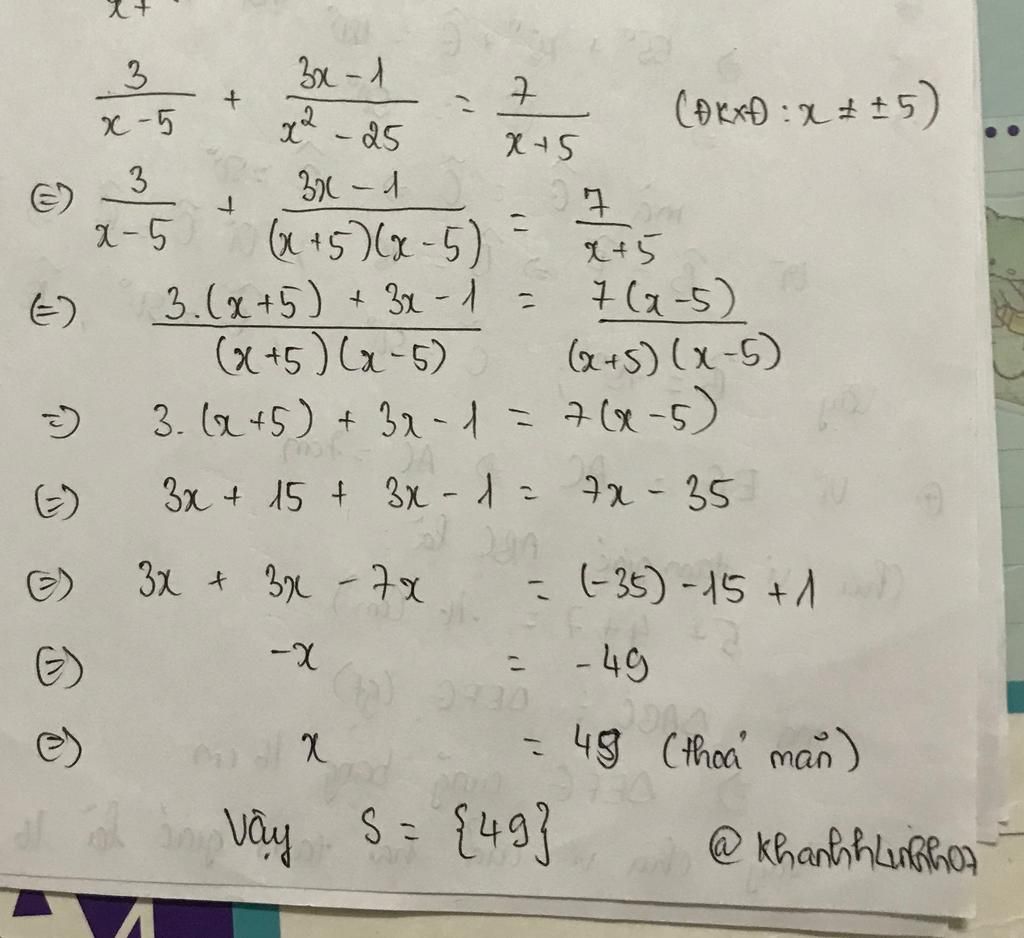 x+
3/(x-5) + (3x-1)/(x²-25) = 7/(x+5) (ĐKXĐ: x ≠ ±5)
(=) 3/(x-5) + (3x-1)/((x+5)(x-5)) = 7/(x+5)
(=) (3.(x+5) + 3x-1)/((x+5)(x-5)) = 7(x-5)/((x+5)(x-5))
=) 3.(x+5) + 3x-1 = 7(x-5)
(=) 3x + 15 + 3x - 1 = 7x - 35
(=) 3x + 3x - 7x = (-35) - 15 + 1
(=) -x = -49
(=) x = 49 (thoả mãn)
Vậy S = {49}
@khanhhLinhh07